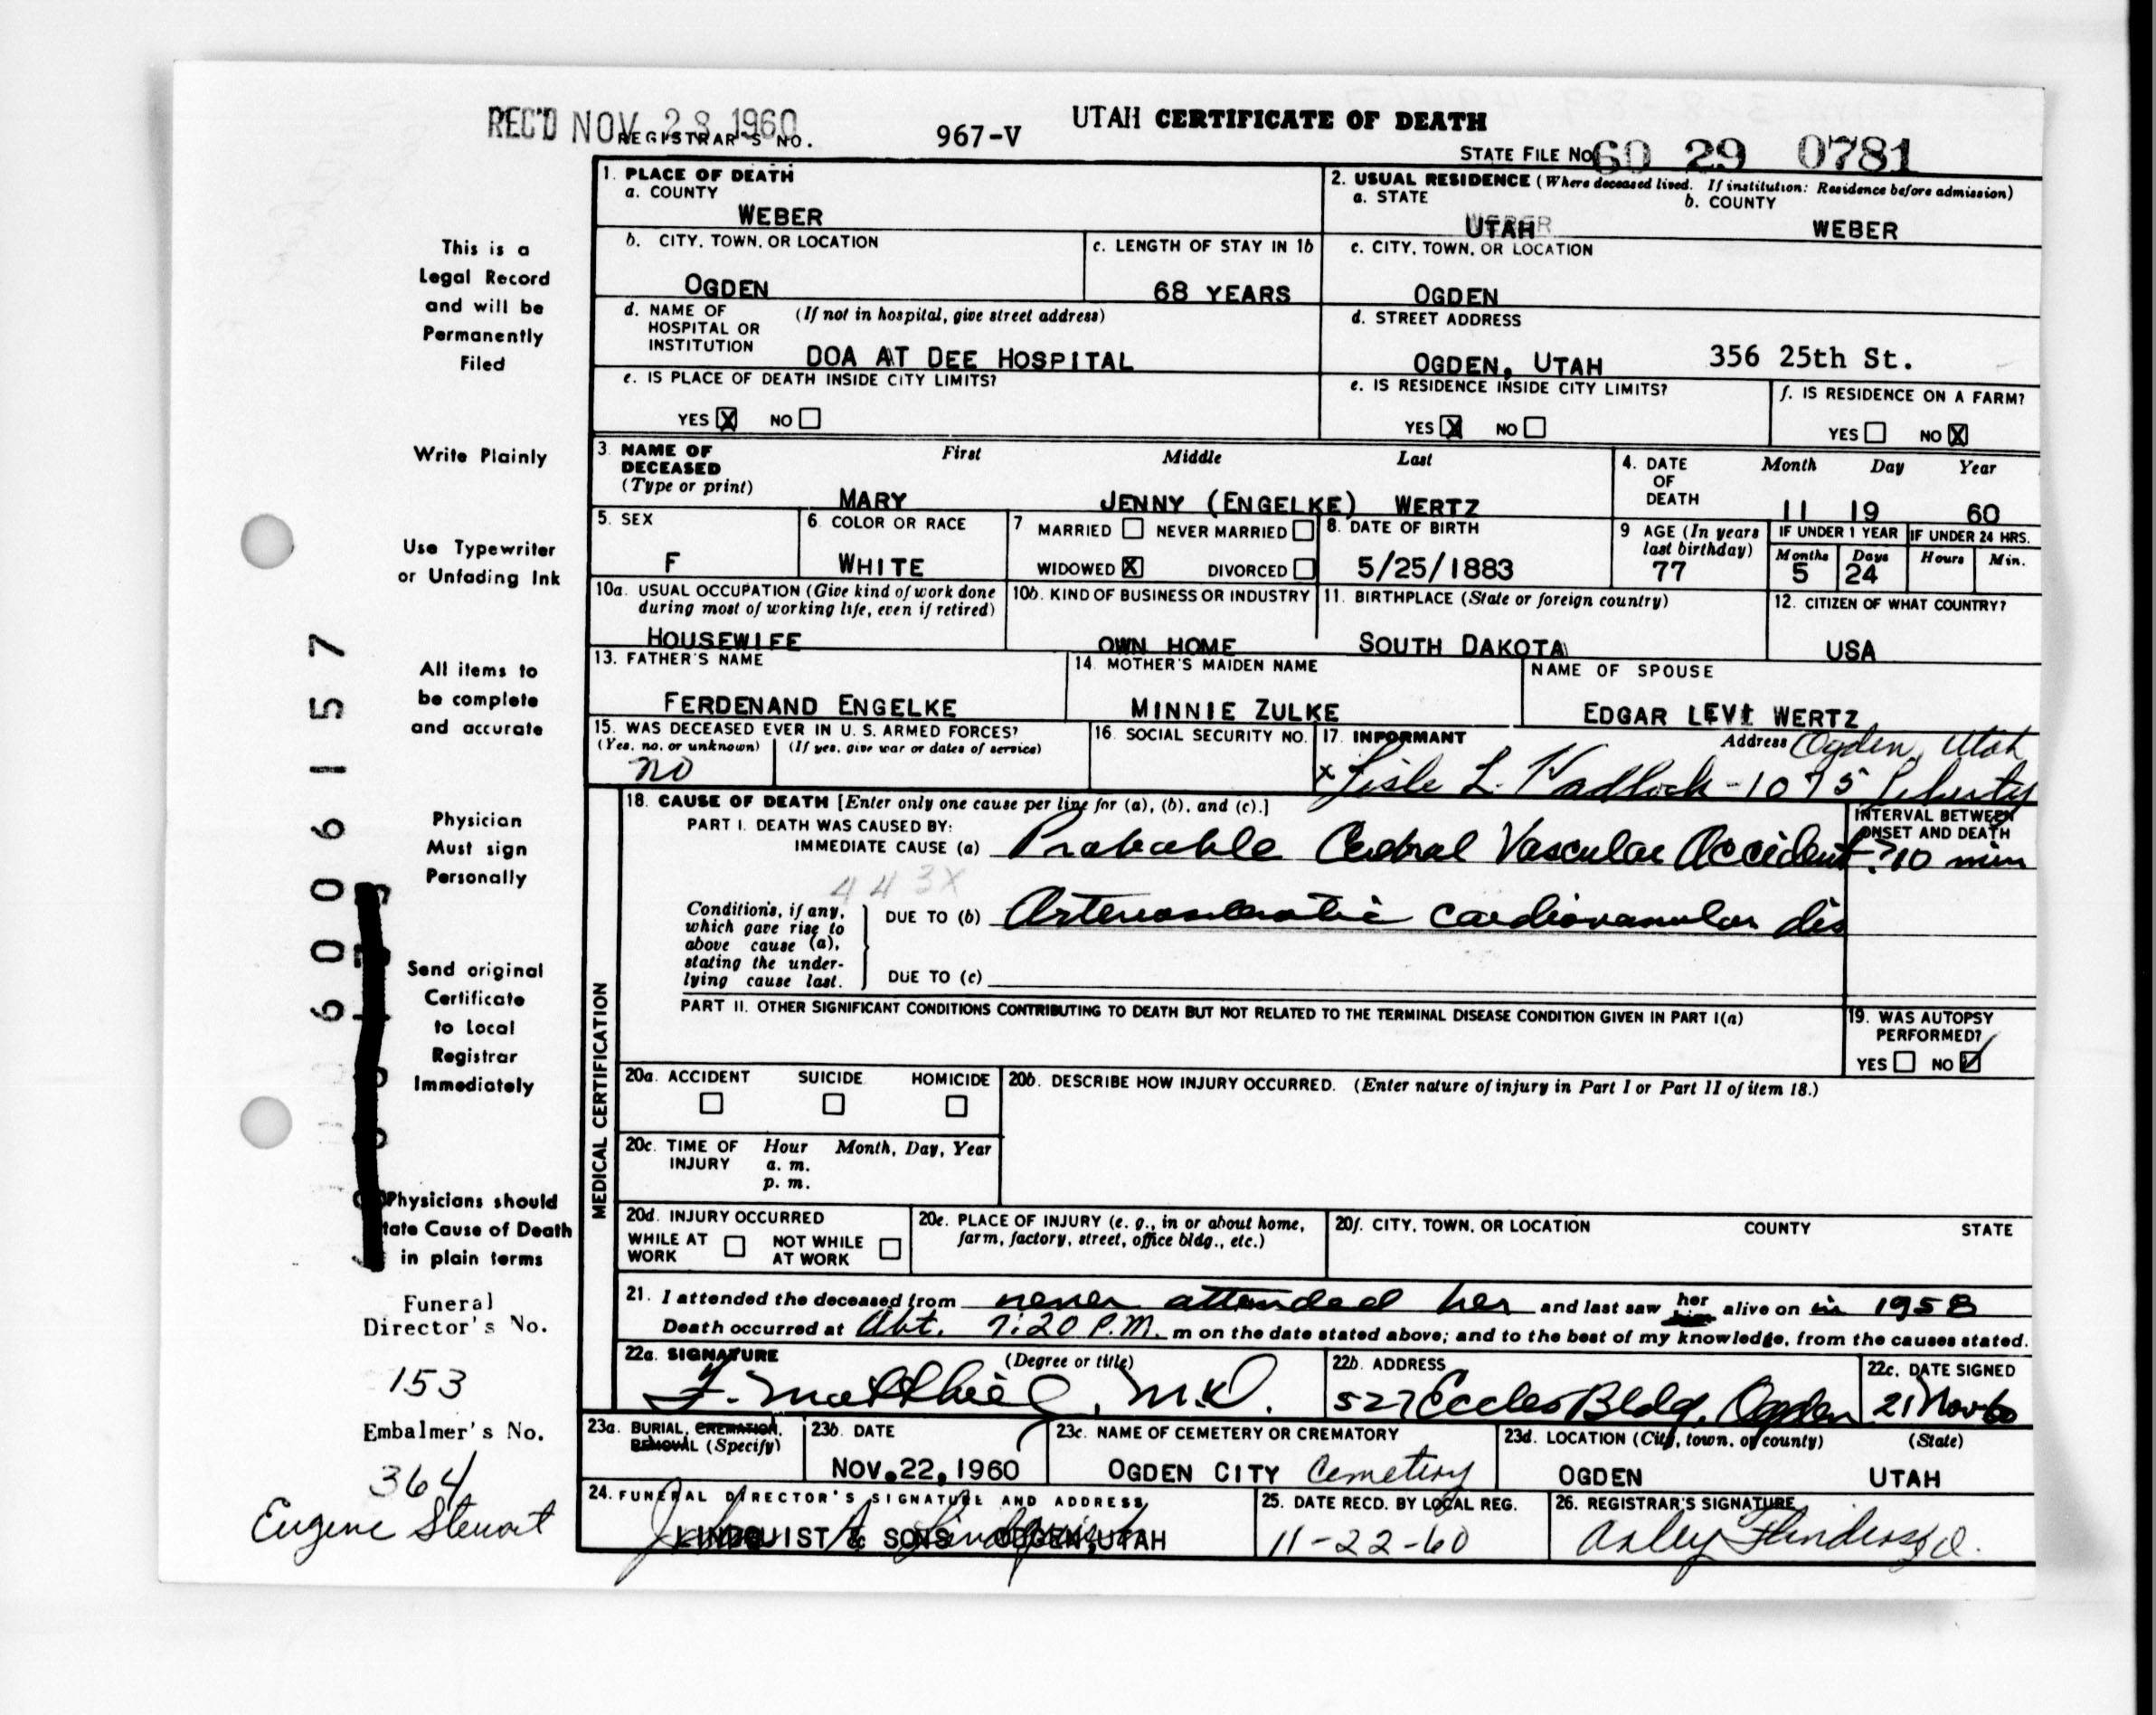 REC'D NOV 28 1960
REGISTRAR'S NO. 967-V
UTAH CERTIFICATE OF DEATH
STATE FILE NO. 60 29 0781
This is a
Legal Record
and will be
Permanently
Filed
Write Plainly
Use Typewriter
or Unfading Ink
All items to
be complete
and accurate
Physician
Must sign
Personally
Send original
Certificate
to Local
Registrar
Immediately
Physicians should
tate Cause of Death
in plain terms
Funeral
Director's No.
153
Embalmer's No.
364
Eugene Stewart
6006157
1. PLACE OF DEATH
a. COUNTY
WEBER
2. USUAL RESIDENCE (Where deceased lived. If institution: Residence before admission)
a. STATE
b. COUNTY
UTAH
WEBER
b. CITY, TOWN, OR LOCATION
OGDEN
c. LENGTH OF STAY IN 1b
68 YEARS
c. CITY, TOWN, OR LOCATION
OGDEN
d. NAME OF HOSPITAL OR INSTITUTION (If not in hospital, give street address)
DOA AT DEE HOSPITAL
d. STREET ADDRESS
OGDEN, UTAH 356 25th St.
e. IS PLACE OF DEATH INSIDE CITY LIMITS?
YES X NO
e. IS RESIDENCE INSIDE CITY LIMITS?
YES X NO
f. IS RESIDENCE ON A FARM?
YES NO X
3. NAME OF DECEASED (Type or print)
First Middle Last
MARY JENNY (ENGELKE) WERTZ
4. DATE OF DEATH
Month Day Year
11 19 60
5. SEX
F
6. COLOR OR RACE
WHITE
7 MARRIED NEVER MARRIED
WIDOWED X DIVORCED
8. DATE OF BIRTH
5/25/1883
9 AGE (In years last birthday)
77
IF UNDER 1 YEAR
Months Days
5 24
IF UNDER 24 HRS.
Hours Min.
10a. USUAL OCCUPATION (Give kind of work done during most of working life, even if retired)
HOUSEWIFE
10b. KIND OF BUSINESS OR INDUSTRY
OWN HOME
11. BIRTHPLACE (State or foreign country)
SOUTH DAKOTA
12. CITIZEN OF WHAT COUNTRY?
USA
13. FATHER'S NAME
FERDENAND ENGELKE
14. MOTHER'S MAIDEN NAME
MINNIE ZULKE
NAME OF SPOUSE
EDGAR LEVI WERTZ
15. WAS DECEASED EVER IN U. S. ARMED FORCES?
(Yes, no, or unknown) (If yes, give war or dates of service)
no
16. SOCIAL SECURITY NO.
17. INFORMANT Address Ogden, Utah
x Lisle L. Hadlock - 1075 Liberty
MEDICAL CERTIFICATION
18. CAUSE OF DEATH [Enter only one cause per line for (a), (b), and (c).]
PART I. DEATH WAS CAUSED BY:
IMMEDIATE CAUSE (a) Probable Cerebral Vascular Accident
INTERVAL BETWEEN ONSET AND DEATH
?10 min
443X
Conditions, if any, which gave rise to above cause (a), stating the underlying cause last.
DUE TO (b) Arteriosclerotic cardiovascular dis
DUE TO (c)
PART II. OTHER SIGNIFICANT CONDITIONS CONTRIBUTING TO DEATH BUT NOT RELATED TO THE TERMINAL DISEASE CONDITION GIVEN IN PART I(a)
19. WAS AUTOPSY PERFORMED?
YES NO ✓
20a. ACCIDENT SUICIDE HOMICIDE
20b. DESCRIBE HOW INJURY OCCURRED. (Enter nature of injury in Part I or Part II of item 18.)
20c. TIME OF INJURY
Hour Month, Day, Year
a. m.
p. m.
20d. INJURY OCCURRED
WHILE AT WORK NOT WHILE AT WORK
20e. PLACE OF INJURY (e. g., in or about home, farm, factory, street, office bldg., etc.)
20f. CITY, TOWN, OR LOCATION COUNTY STATE
21. I attended the deceased from never attended her and last saw her him alive on in 1958
Death occurred at Abt. 7:20 P.M. m on the date stated above; and to the best of my knowledge, from the causes stated.
22a. SIGNATURE (Degree or title)
F. Matthie, M.D.
22b. ADDRESS
527 Eccles Bldg, Ogden
22c. DATE SIGNED
21 Nov 60
23a. BURIAL, CREMATION, REMOVAL (Specify)
23b. DATE
NOV. 22, 1960
23c. NAME OF CEMETERY OR CREMATORY
OGDEN CITY Cemetery
23d. LOCATION (City, town, or county) (State)
OGDEN UTAH
24. FUNERAL DIRECTOR'S SIGNATURE AND ADDRESS
LINDQUIST & SONS OGDEN, UTAH
25. DATE RECD. BY LOCAL REG.
11-22-60
26. REGISTRAR'S SIGNATURE